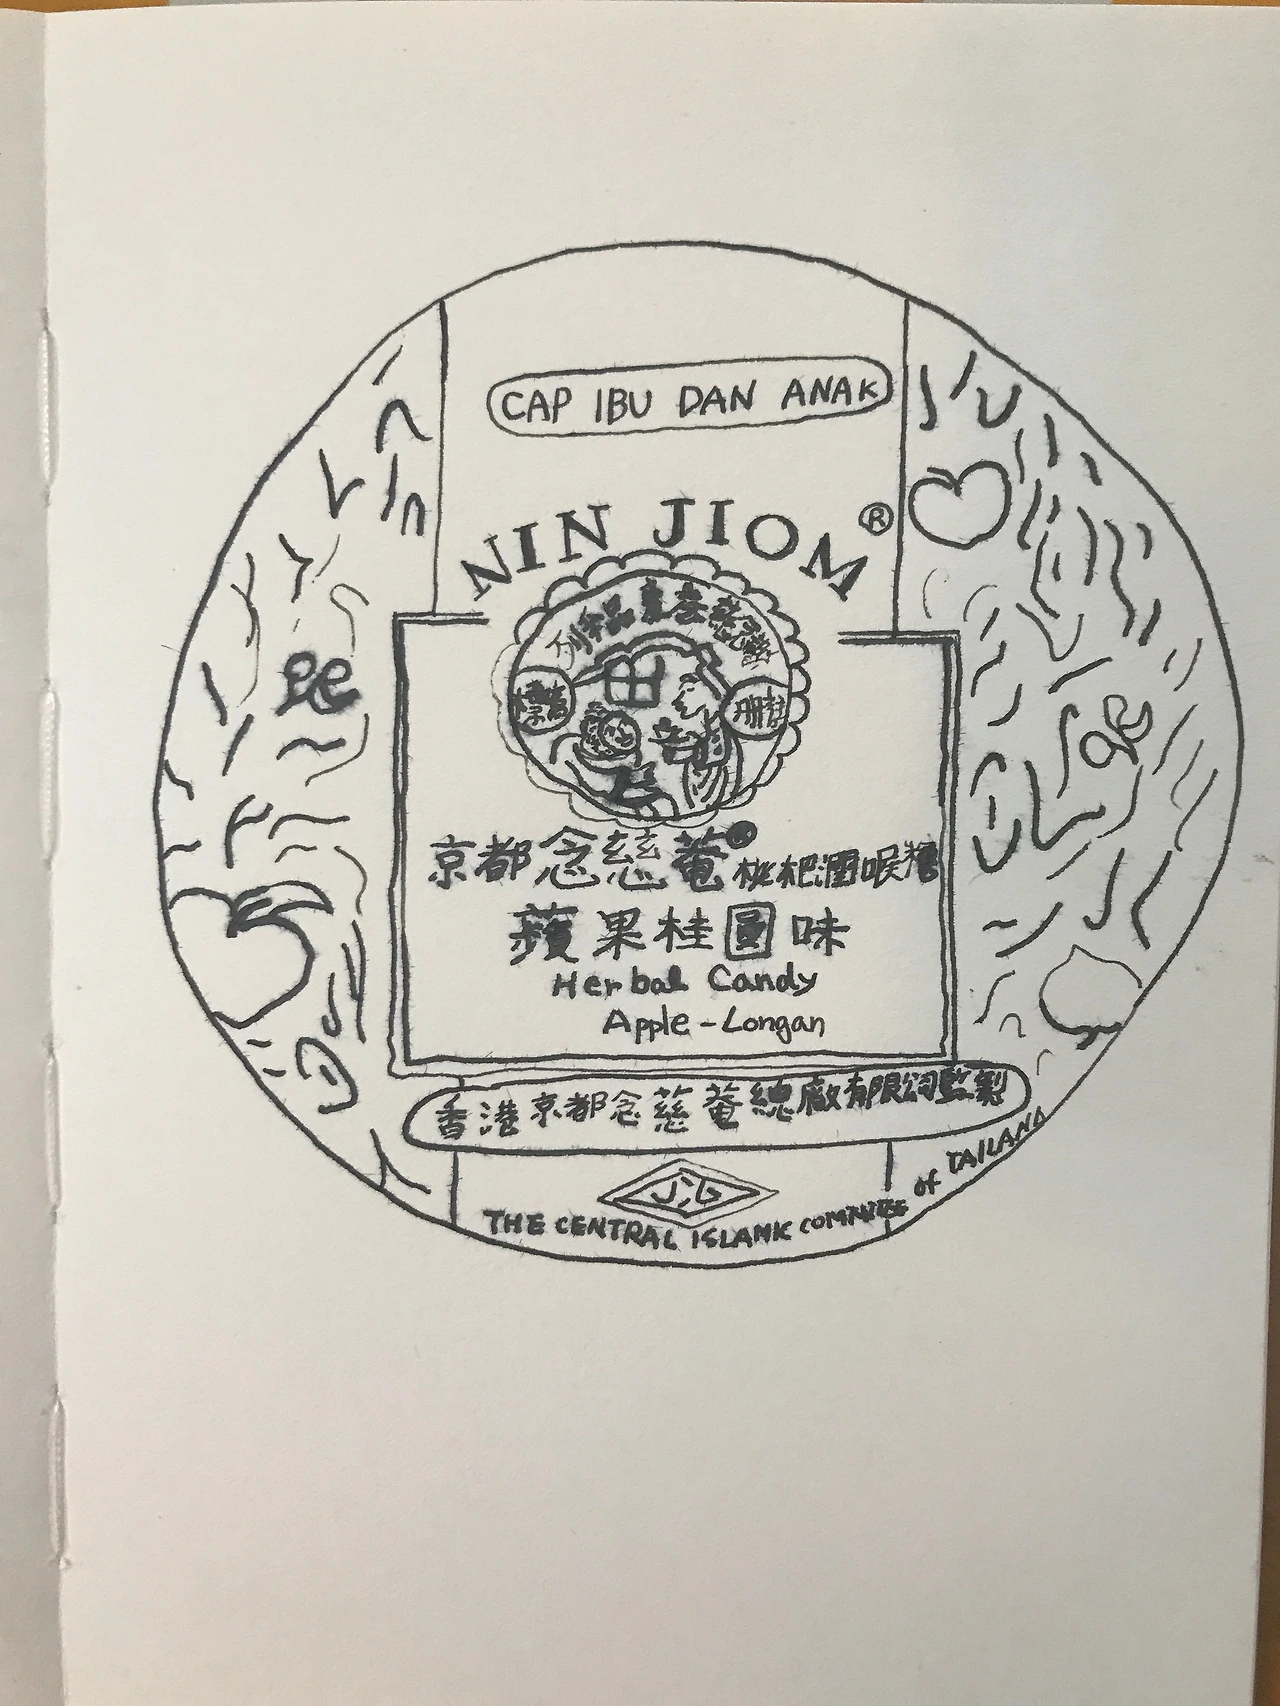 CAP IBU DAN ANAK
NIN JIOM®
京都念慈菴® 枇杷潤喉糖
蘋果桂圓味
Herbal Candy
Apple-Longan
香港京都念慈菴總廠有限公司監製
THE CENTRAL ISLAMIC COMMITTEE of TAILAND